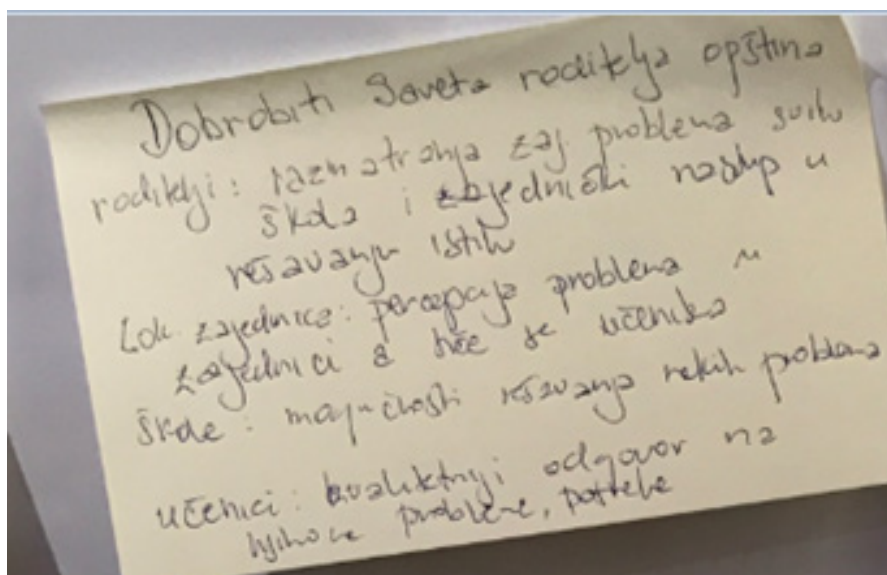 Dobrobiti Saveta roditelja opština
roditelji: razmatranja zaj. problema svih
škola i zajednički nastup u
rešavanju istih
Lok. zajednice: percepcija problema u
zajednici a tiče se učenika
škole: mogućnosti rešavanja nekih problema
učenici: kvalitetniji odgovor na
njihove probleme, potrebe